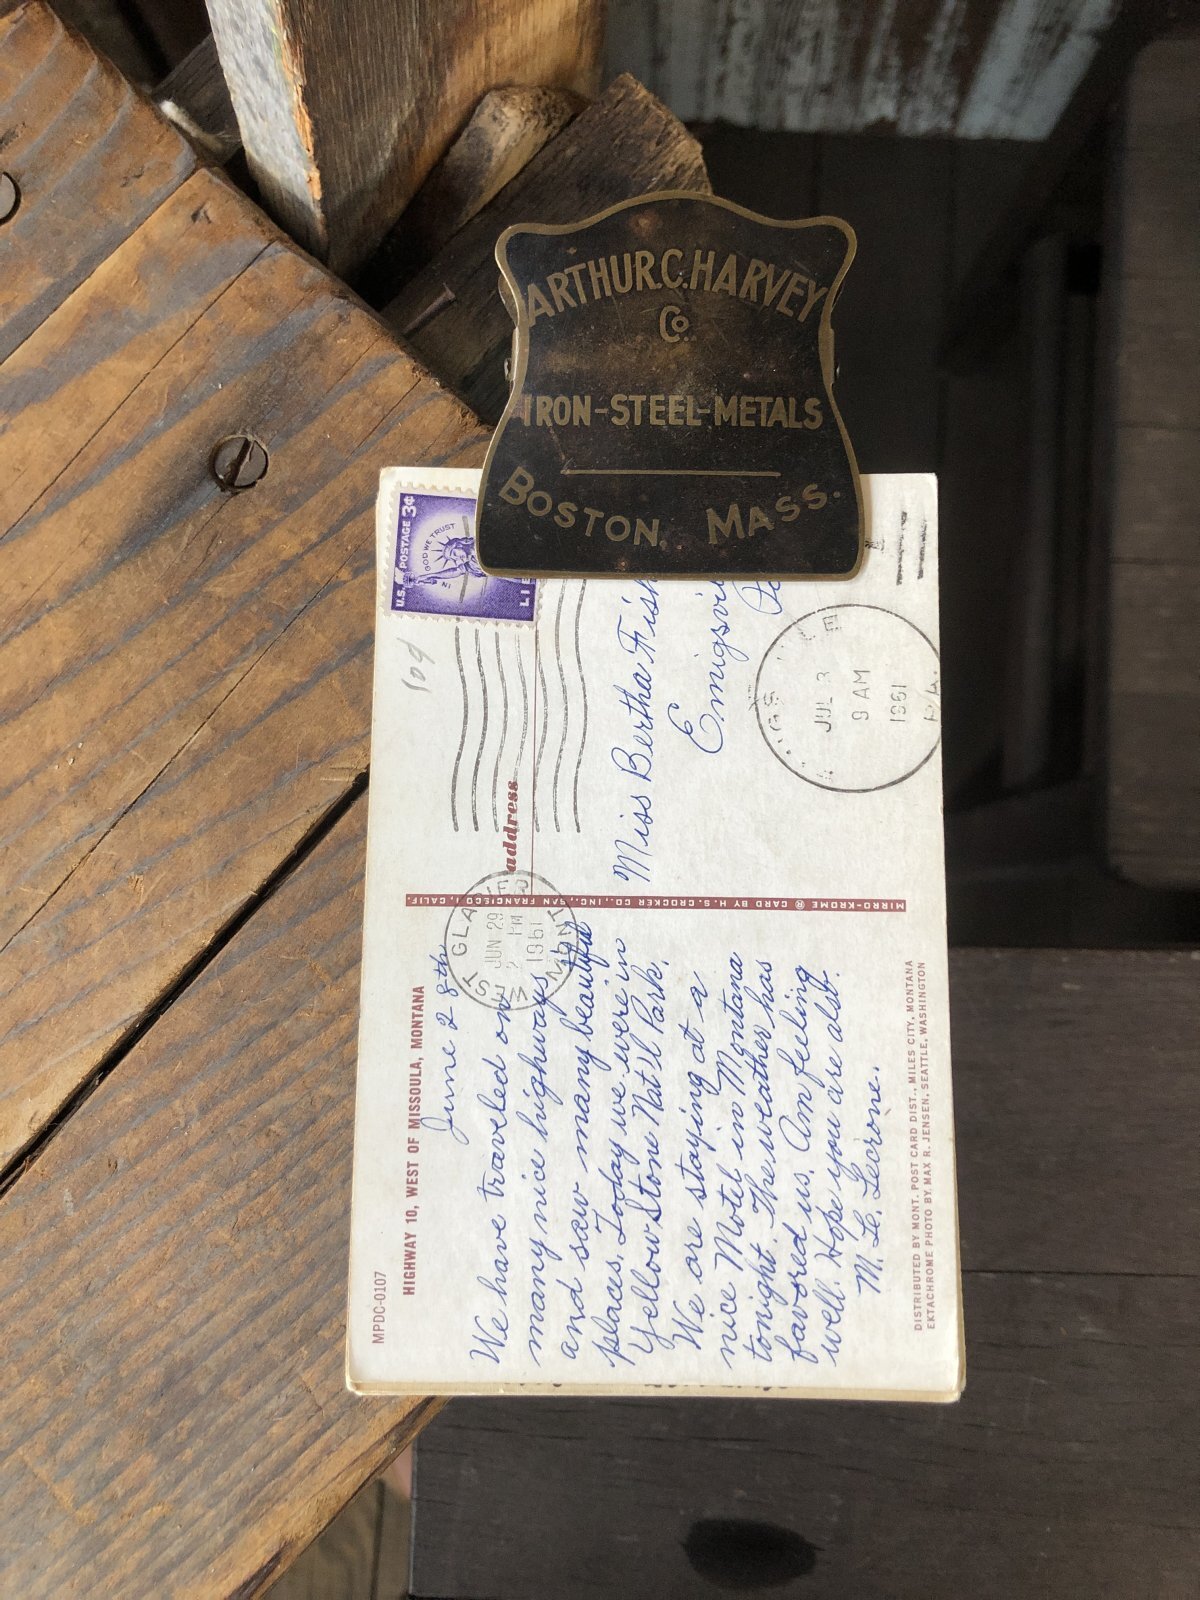 ARTHUR C. HARVEY
Co.
IRON-STEEL-METALS
BOSTON, MASS.
U.S. POSTAGE 3¢
IN GOD WE TRUST
LI
104
MPDC-0107
HIGHWAY 10, WEST OF MISSOULA, MONTANA
June 28th
We have traveled on
many nice highways
and saw many beautiful
places. Today we were in
Yellow Stone Nat'l Park.
We are staying at a
nice Motel in Montana
tonight. The weather has
favored us. Am feeling
well. Hope you are also.
M. Le. Lecrone.
DISTRIBUTED BY MONT. POST CARD DIST., MILES CITY, MONTANA
EKTACHROME PHOTO BY MAX R. JENSEN, SEATTLE, WASHINGTON
MIRRO-KROME ® CARD BY H. S. CROCKER CO., INC., SAN FRANCISCO 1, CALIF.
address
WEST
JUN 29
PM
1961
MONT
Miss Bertha Fish
Emigsvil
JUL 3
9 AM
1961
PA.